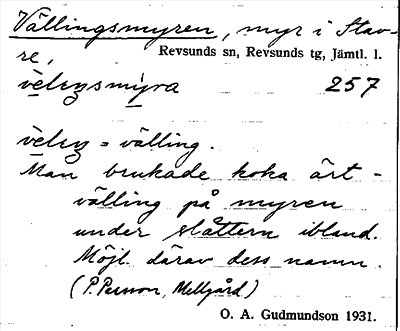 Vällingsmyren, myr i Stav-
Revsunds sn, Revsunds tg, Jämtl. l.
re,
257
velŋ = välling.
Man brukade koka ärt-
välling på myren
under slåttern ibland.
Möjl. därav dess namn.
(P. Persson, Mellgård)
O. A. Gudmundson 1931.